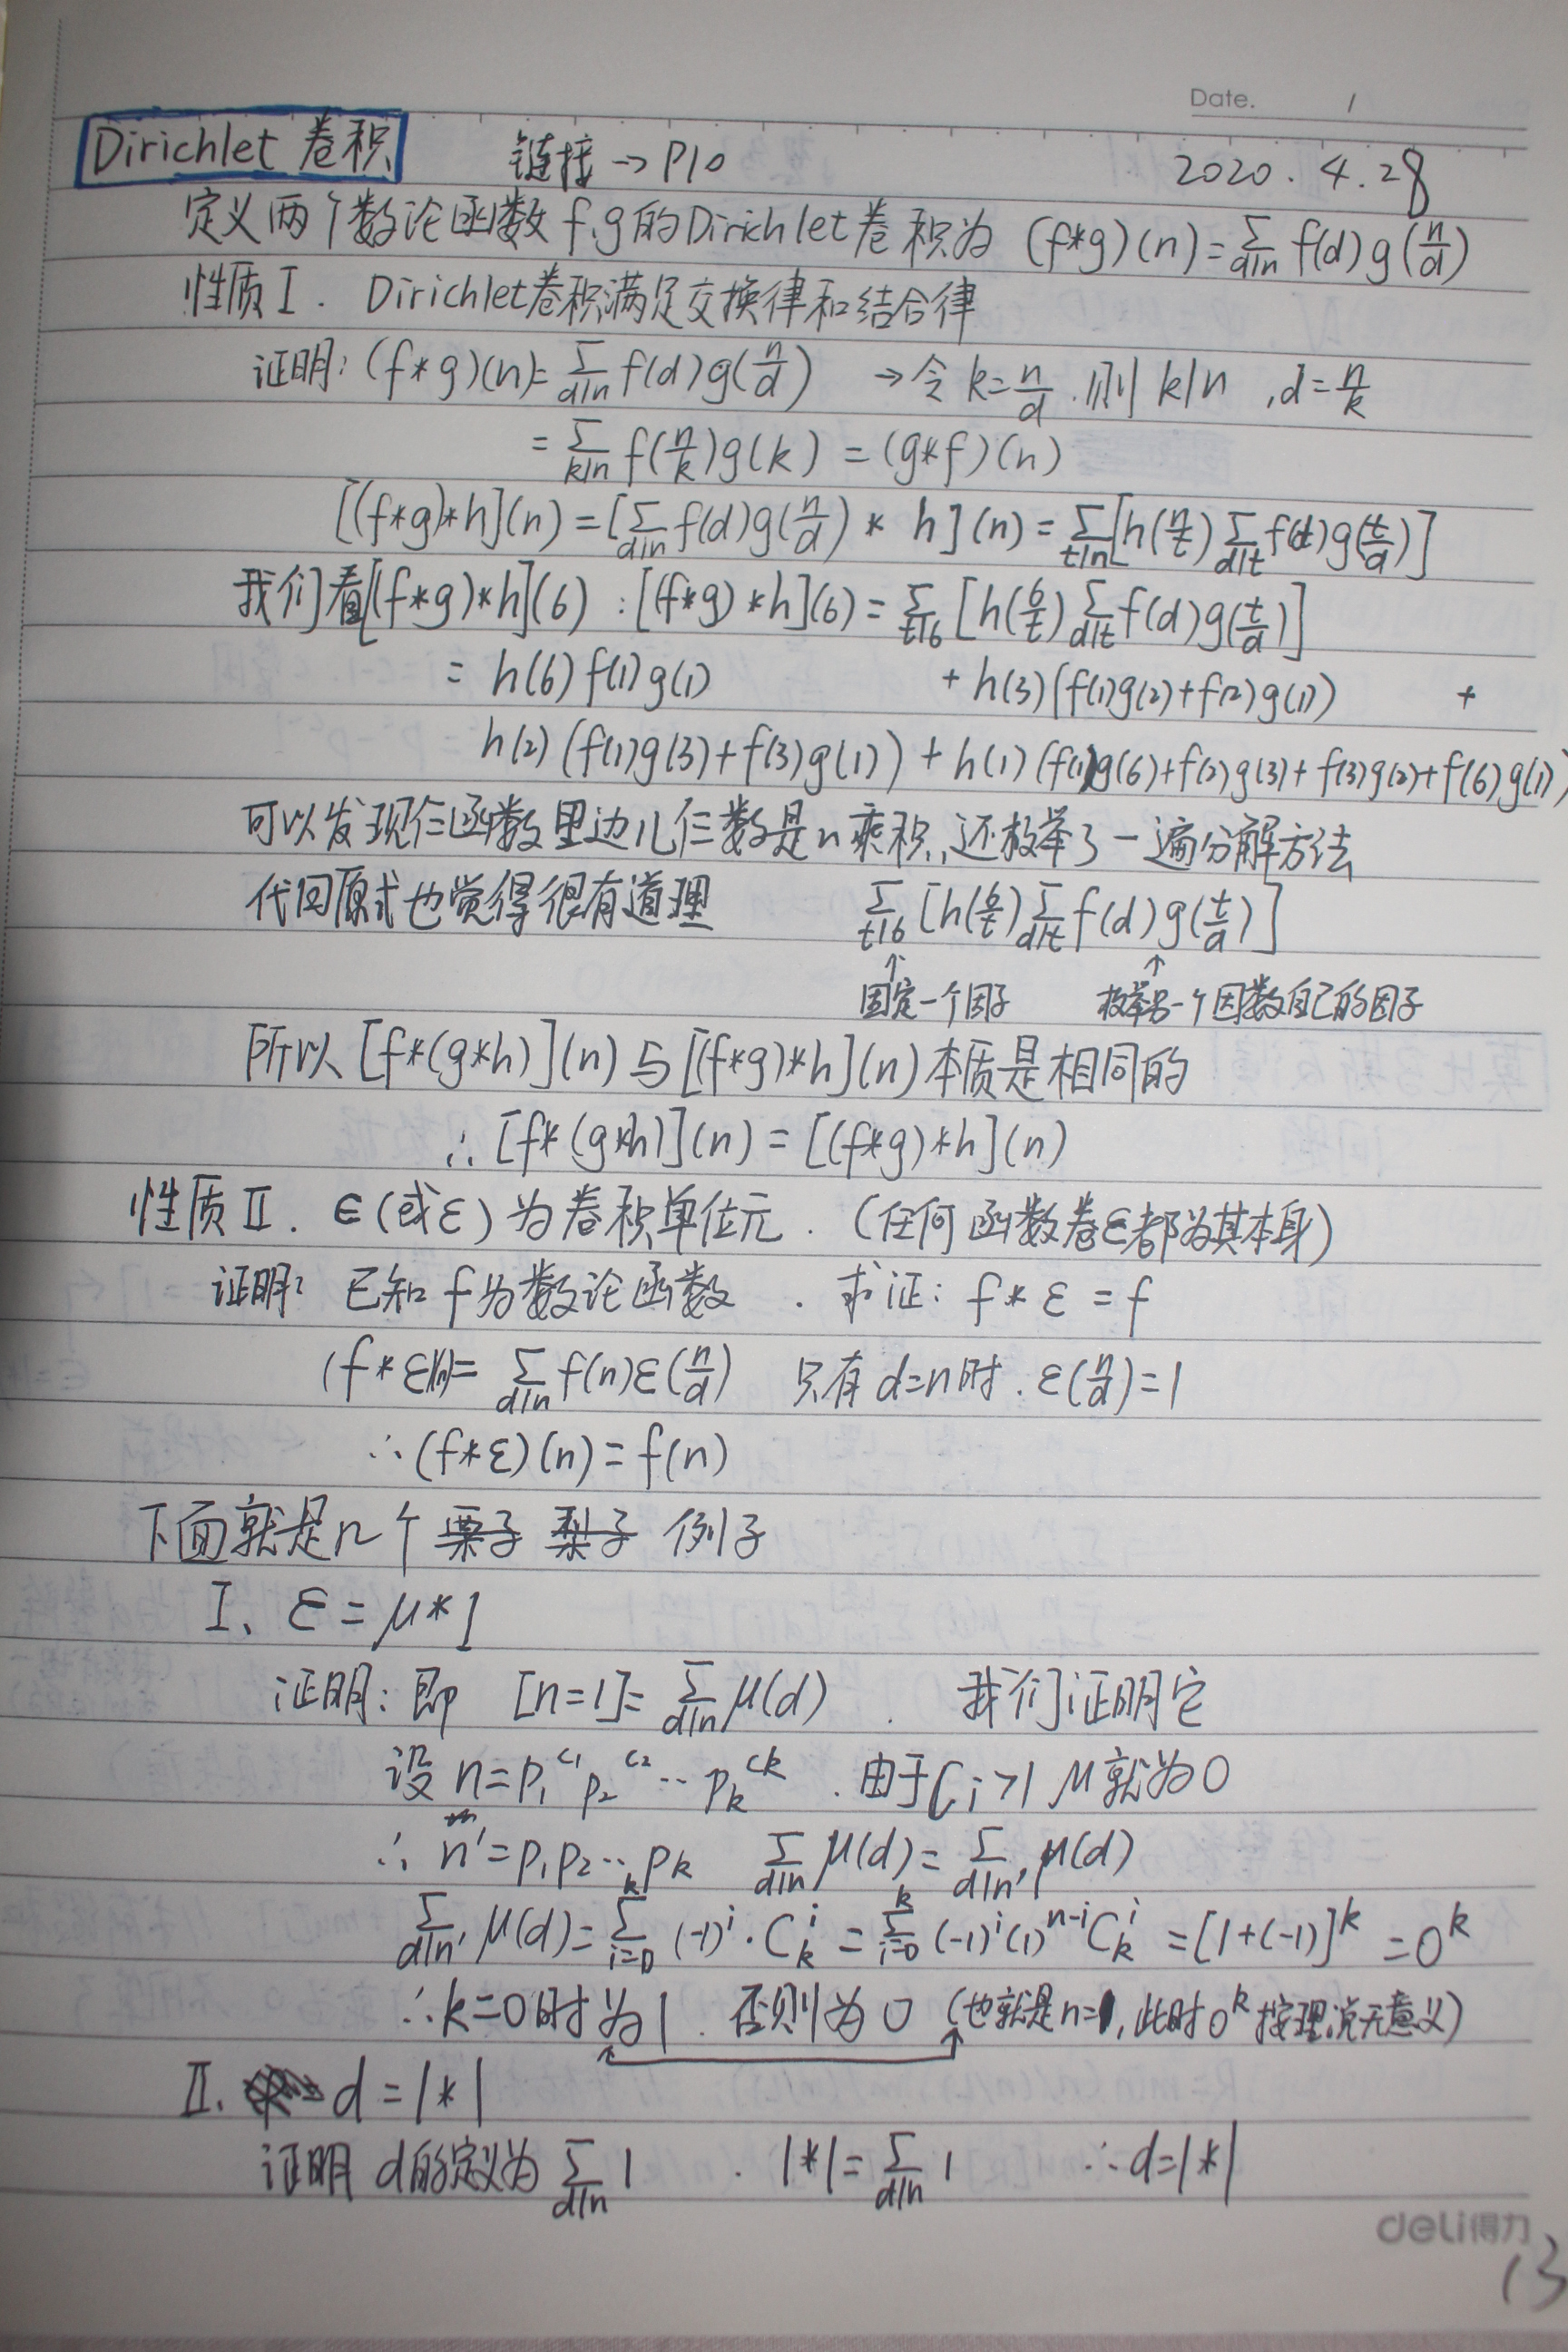 Date. /
Dirichlet 卷积 链接→P10 2020.4.28
定义两个数论函数 f,g的Dirichlet卷积为 (f*g)(n)=∑_{d|n} f(d)g(n/d)
性质Ⅰ. Dirichlet卷积满足交换律和结合律
证明: (f*g)(n)=∑_{d|n} f(d)g(n/d) →令 k=n/d.则 k|n ,d=n/k
=∑_{k|n} f(n/k)g(k) =(g*f)(n)
[(f*g)*h](n)=[∑_{d|n} f(d)g(n/d) * h](n)=∑_{t|n}[h(n/t)∑_{d|t} f(d)g(t/d)]
我们看[(f*g)*h](6):[(f*g)*h](6)=∑_{t|6}[h(6/t)∑_{d|t} f(d)g(t/d)]
= h(6)f(1)g(1) +h(3)(f(1)g(2)+f(2)g(1)) +
h(2)(f(1)g(3)+f(3)g(1))+h(1)(f(1)g(6)+f(2)g(3)+f(3)g(2)+f(6)g(1))
可以发现仨函数里边儿仨数是n乘积,还枚举了一遍分解方法
代回原式也觉得很有道理 ∑_{t|6}[h(6/t)∑_{d|t} f(d)g(t/d)]
↑ ↑
固定一个因子 枚举另一个因数自己的因子
所以[f*(g*h)](n)与[(f*g)*h](n)本质是相同的
∴[f*(g*h)](n)=[(f*g)*h](n)
性质Ⅱ. ϵ(或ε)为卷积单位元.(任何函数卷ε都为其本身)
证明: 已知f为数论函数. 求证: f*ε=f
(f*ε)(n)=∑_{d|n} f(n)ε(n/d) 只有d=n时.ε(n/d)=1
∴(f*ε)(n)=f(n)
下面就是n个 栗子 梨子 例子
Ⅰ、ε=μ*1
证明: 即 [n=1]=∑_{d|n} μ(d). 我们证明它
设n=p₁^{c₁}p₂^{c₂}…p_k^{c_k}.由于C_i>1 μ就为0
∴ n'=p₁p₂…p_k ∑_{d|n} μ(d)=∑_{d|n'} μ(d)
∑_{d|n'} μ(d)=∑_{i=0}^{k} (-1)^i·C_k^i=∑_{i=0}^{k} (-1)^i(1)^{n-i}C_k^i=[1+(-1)]^k=0^k
∴k=0时为1.否则为0 (也就是n=1,此时0^k按理说无意义)
Ⅱ. d=1*1
证明 d的定义为∑_{d|n} 1. 1*1=∑_{d|n} 1 ∴d=1*1
deli得力
13